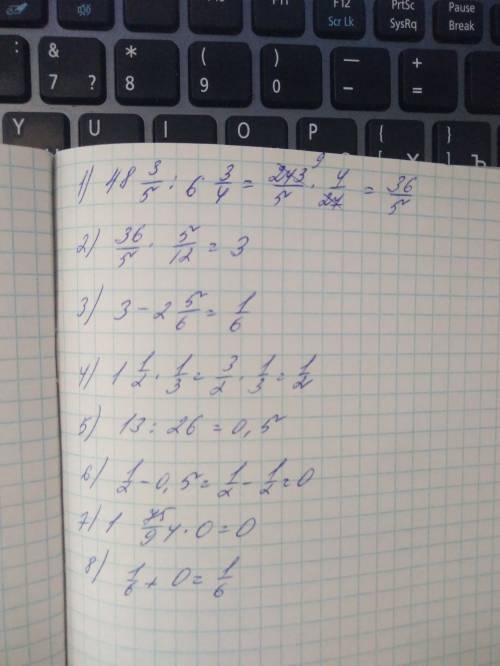 F12 PrtSc Pause
Scr Lk SysRq Break
: & * ( ) — +
; 7 ? 8 9 0 - =
Y U I O P { }
[ ] Ъ
1) 48 3/5 : 6 3/4 = 243/5 · 4/27 = 36/5
9
2) 36/5 · 5/12 = 3
3) 3 - 2 5/6 = 1/6
4) 1 1/2 · 1/3 = 3/2 · 1/3 = 1/2
5) 13 : 26 = 0,5
6) 1/2 - 0,5 = 1/2 - 1/2 = 0
7) 1 75/94 · 0 = 0
8) 1/6 + 0 = 1/6